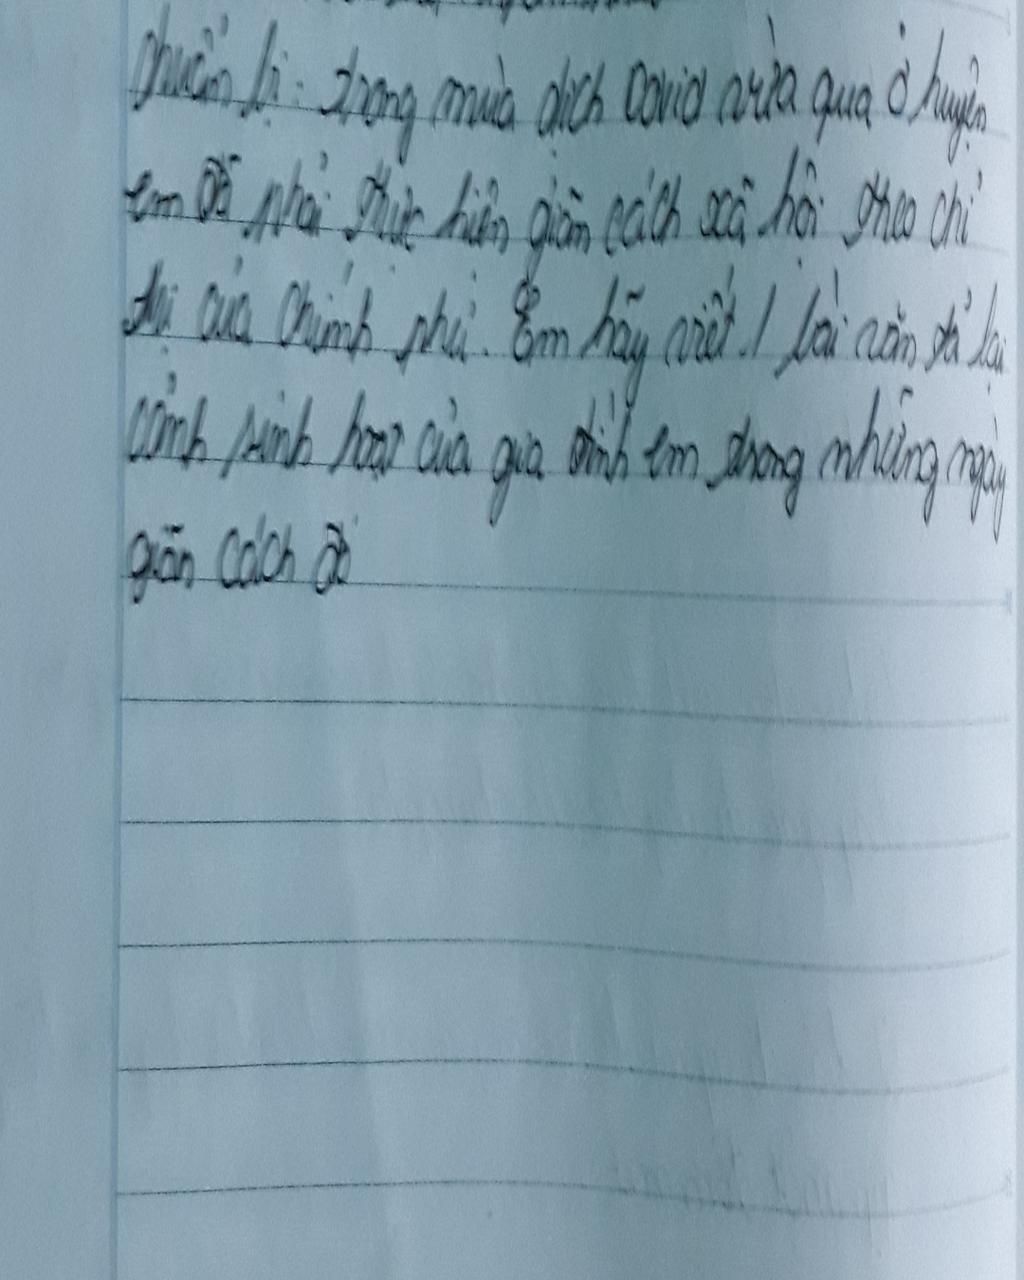 chuẩn bị: trong mùa dịch Covid vừa qua ở huyện
em đã phải thực hiện giãn cách xã hội theo chỉ
thị của Chính phủ. Em hãy viết 1 bài văn tả lại
cảnh sinh hoạt của gia đình em trong những ngày
giãn cách đó